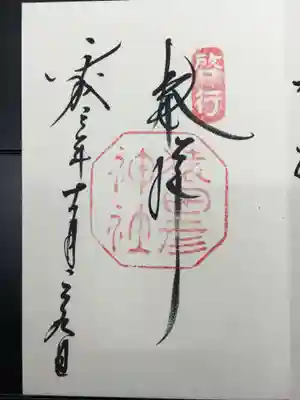 啓行
奉拝
猿田彦
神社
平成三年十月二九日